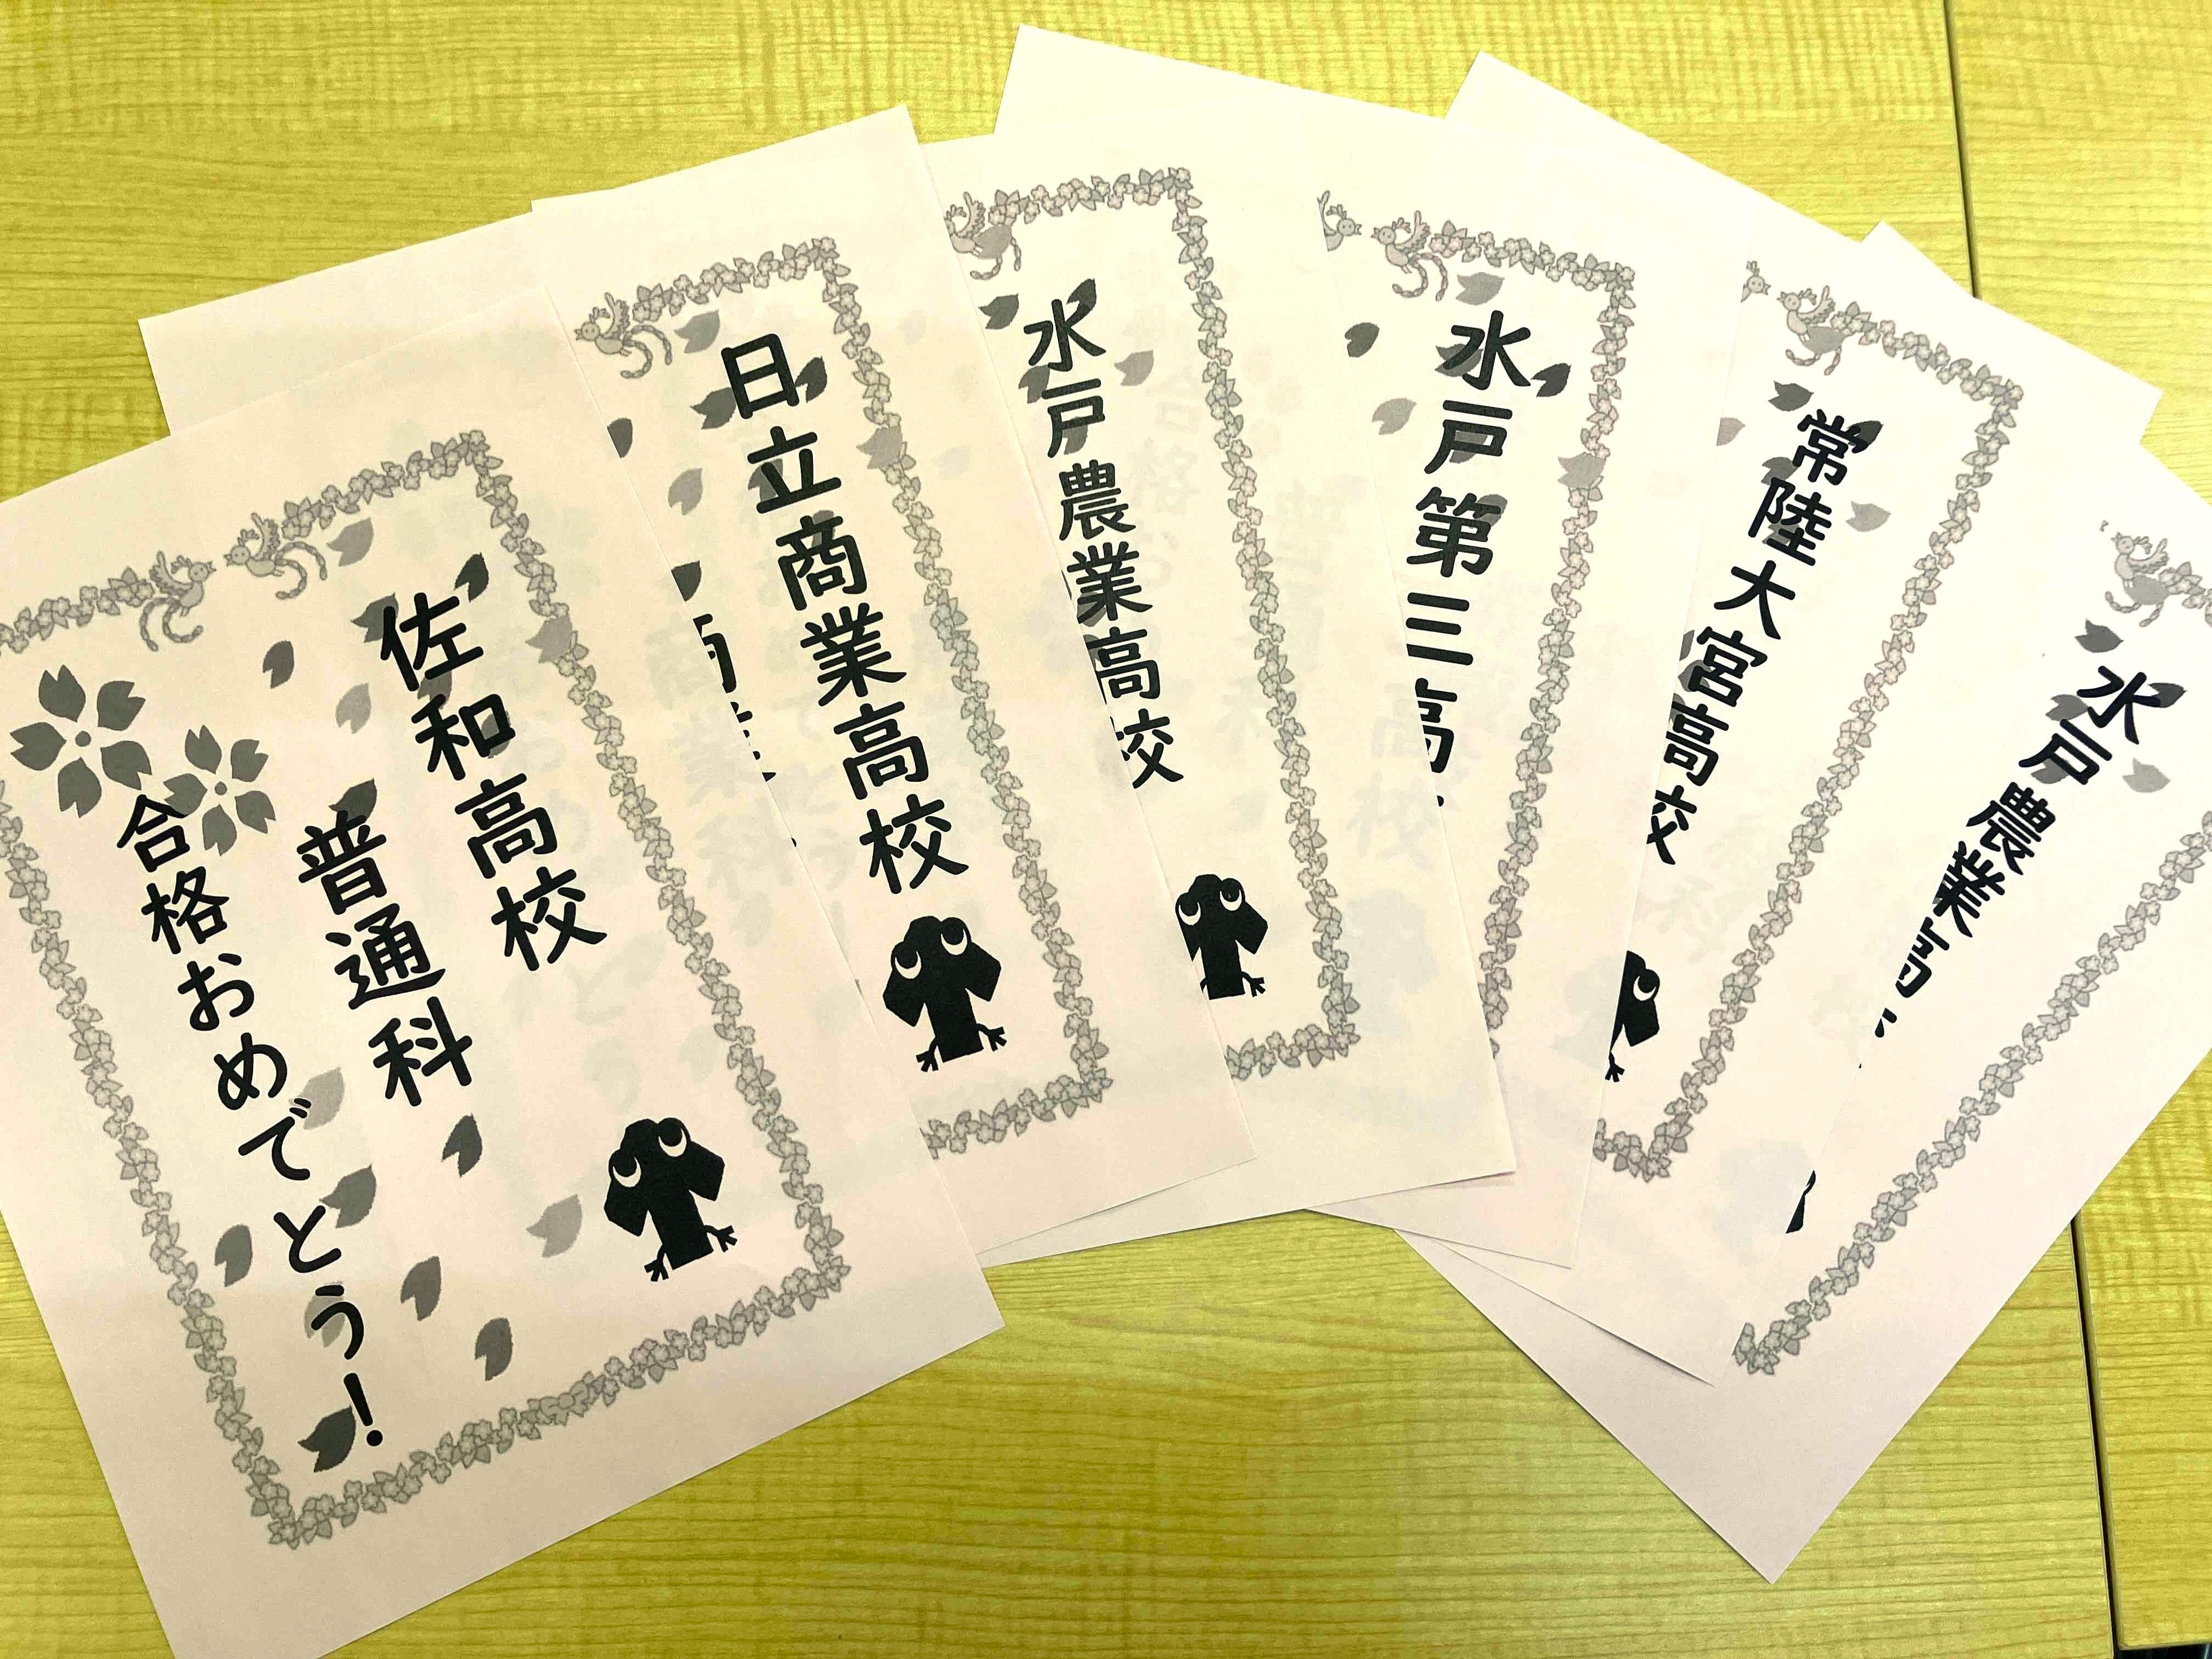 佐和高校
普通科
合格おめでとう!
日立商業高校
水戸農業高校
水戸第三高
常陸大宮高校
水戸農業高